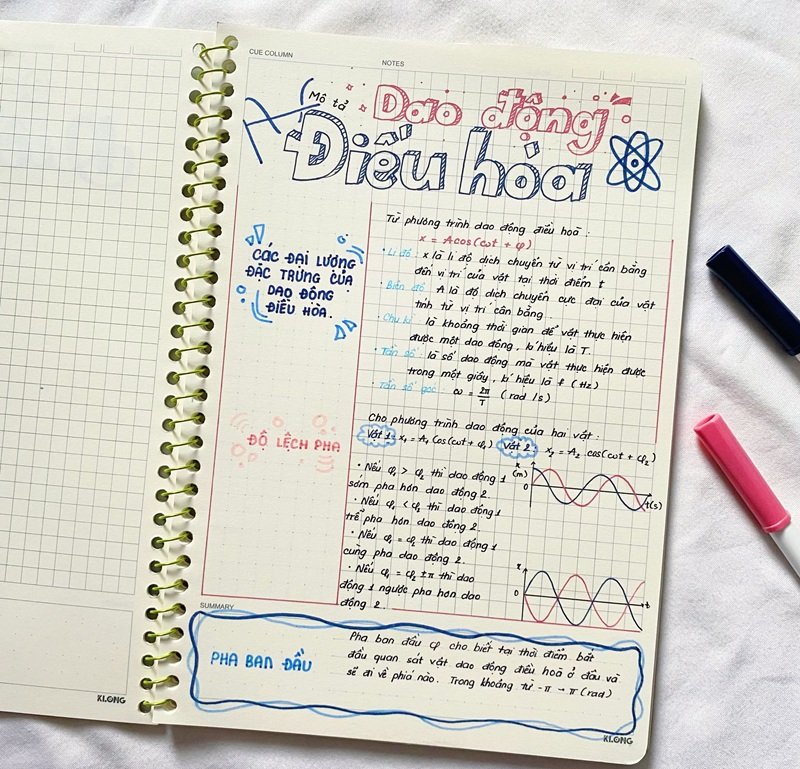 CUE COLUMN
NOTES
Mô tả
Dao động
Điều hòa
CÁC ĐẠI LƯỢNG
ĐẶC TRƯNG CỦA
DAO ĐỘNG
ĐIỀU HÒA.
Từ phương trình dao động điều hoà :
x = Acos(ωt + φ)
• Li độ : x là li độ dịch chuyển từ vị trí cân bằng
đến vị trí của vật tại thời điểm t
• Biên độ : A là độ dịch chuyển cực đại của vật
tính từ vị trí cân bằng.
• Chu kì là khoảng thời gian để vật thực hiện
được một dao động, kí hiệu là T.
• Tần số : là số dao động mà vật thực hiện được
trong một giây, kí hiệu là f (Hz)
• Tần số góc : ω = 2π/T (rad /s)
ĐỘ LỆCH PHA
Cho phương trình dao động của hai vật :
Vật 1: x₁ = A₁ cos(ωt + φ₁) Vật 2: x₂ = A₂ cos(ωt + φ₂)
• Nếu φ₁ > φ₂ thì dao động 1
sớm pha hơn dao động 2.
• Nếu φ₁ < φ₂ thì dao động 1
trễ pha hơn dao động 2.
• Nếu φ₁ = φ₂ thì dao động 1
cùng pha dao động 2.
• Nếu φ₁ = φ₂ ± π thì dao
động 1 ngược pha hơn dao
động 2.
x
(m)
0
t(s)
x
0
t
SUMMARY
PHA BAN ĐẦU
Pha ban đầu φ cho biết tại thời điểm bắt
đầu quan sát vật dao động điều hoà ở đâu và
sẽ đi về phía nào. Trong khoảng từ -π → π (rad)
KLONG
KLONG